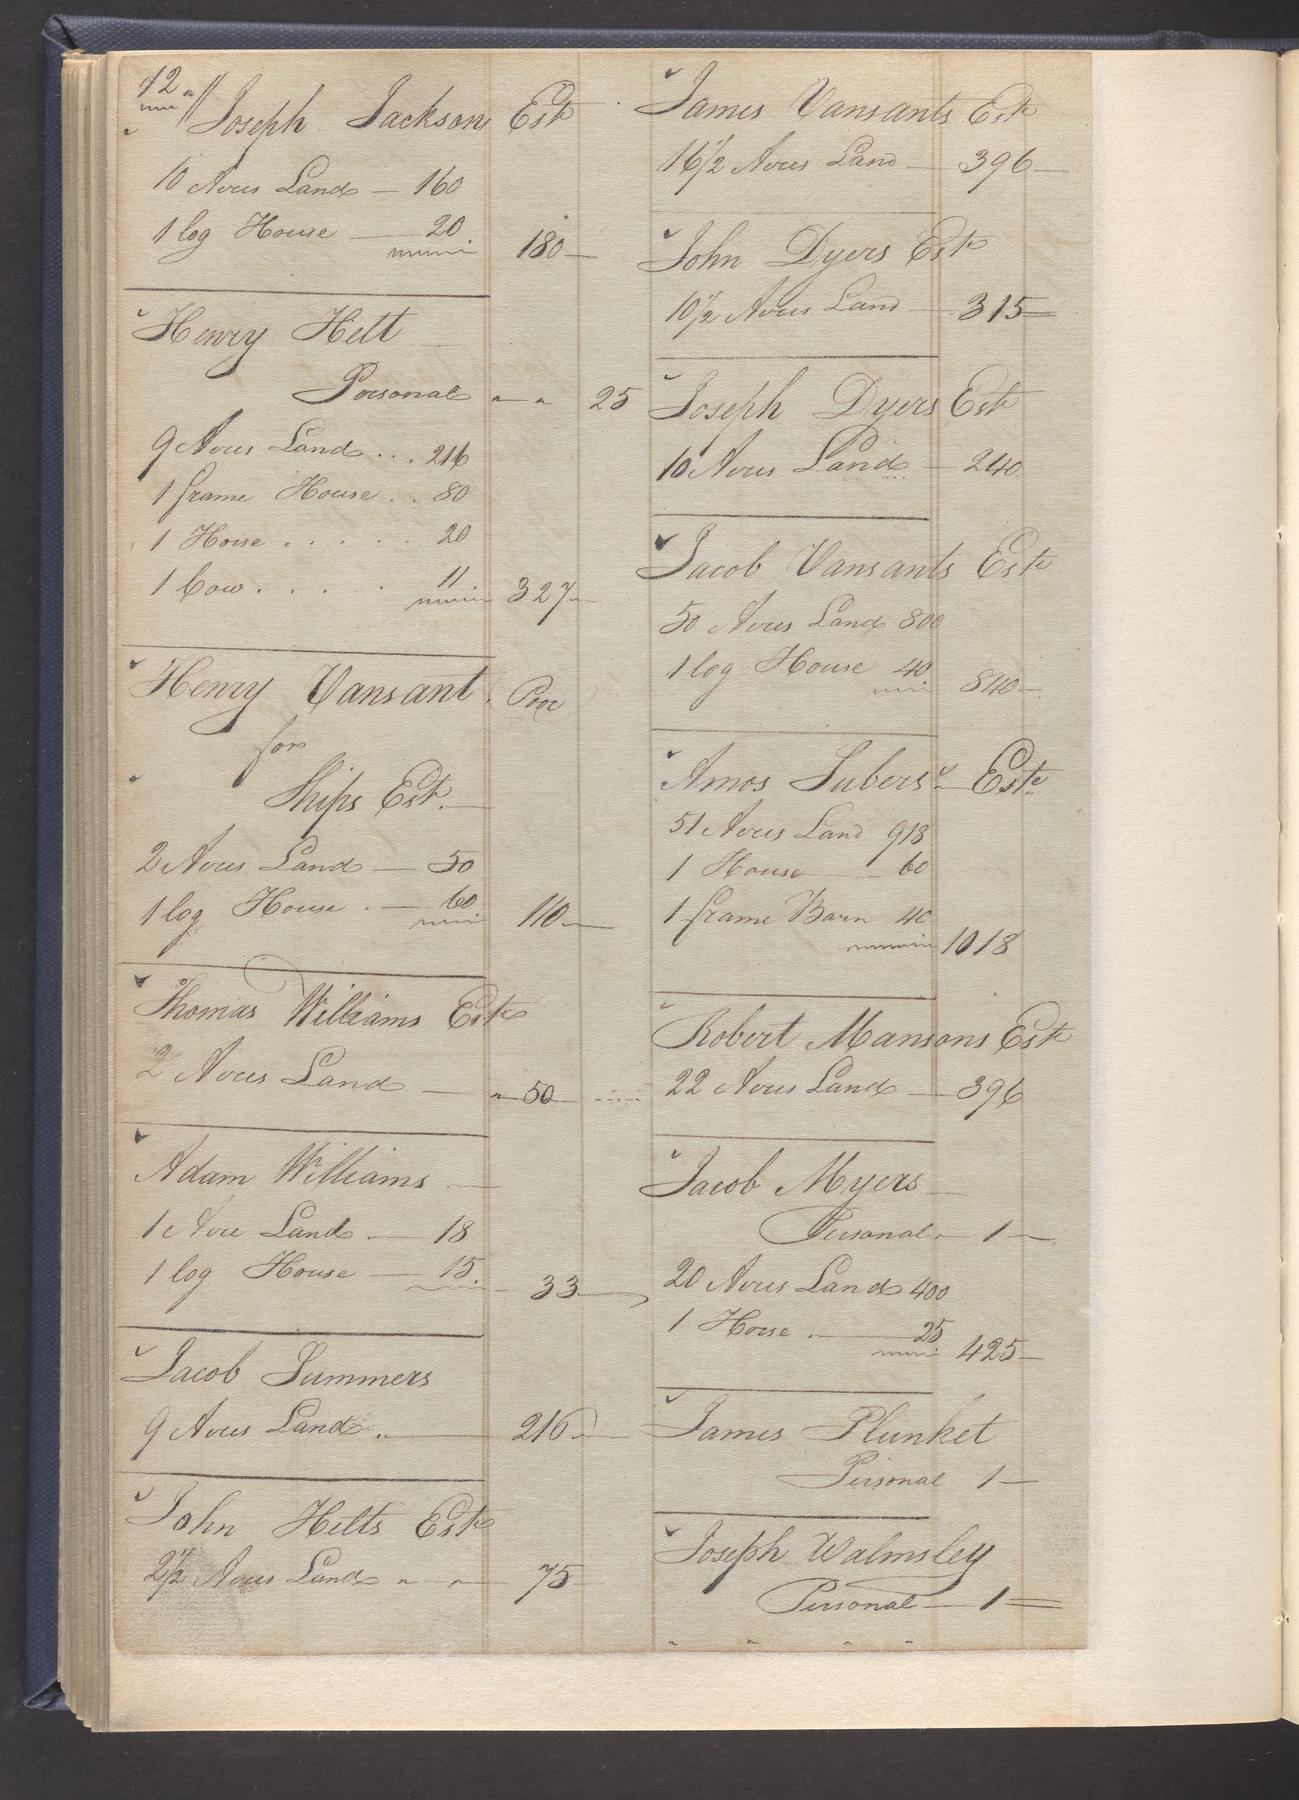 12
Joseph Jacksons Este
10 Acres Land — 160
1 log House — 20 180 —
Henry Helt
Personal " " 25
9 Acres Land ... 216
1 frame House .. 80
1 Horse ..... 20
1 Cow ..... 11 327 —
Henry Vansant Poor
for
Ships Est. —
2 Acres Land — 50
1 log House . — 60 110 —
Thomas Williams Este
2 Acres Land — " 50 —
Adam Williams —
1 Acre Land — 18
1 log House — 15 33 —
Jacob Summers
9 Acres Land " — 216 —
John Helts Este
2 1/2 Acres Land " " 75 —
James Vansants Este
16 1/2 Acres Land — 396 —
John Dyers Este
10 1/2 Acres Land — 315 =
Joseph Dyers Este
10 Acres Land — 240
Jacob Vansants Este
50 Acres Land 800
1 log House 40 840 —
Amos Subers Este
51 Acres Land 918
1 House — 60
1 frame Barn 40 1018
Robert Mansons Este
22 Acres Land — 396
Jacob Myers —
Personal — 1 —
20 Acres Land 400
1 Horse . — 25 425 —
James Plunket
Personal 1 —
Joseph Walmsley
Personal — 1 =
" " " "